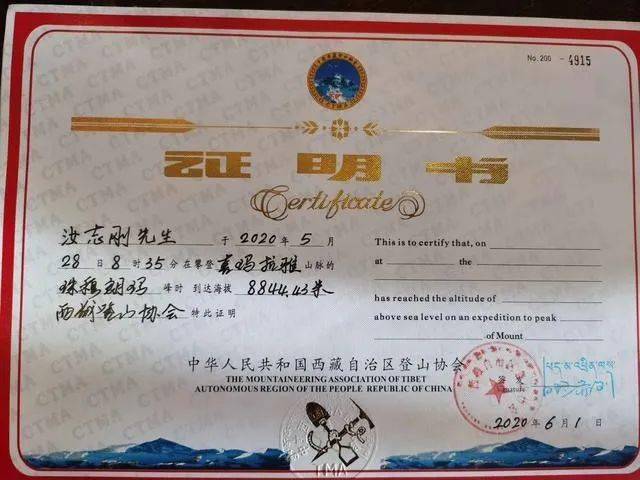 No. 200 - 4915
证明书
Certificate
汝志刚先生 于 2020 年 5 月
28 日 8 时 35 分在攀登 喜玛拉雅 山脉的
珠穆朗玛 峰时 到达海拔 8844.43米
西藏登山协会 特此证明
This is to certify that, on
at the
has reached the altitude of
above sea level on an expedition to peak
of Mount
中华人民共和国西藏自治区登山协会
THE MOUNTAINEERING ASSOCIATION OF TIBET
AUTONOMOUS REGION OF THE PEOPLE REPUBLIC OF CHINA
签发
2020 年 6 月 1 日
CTMA